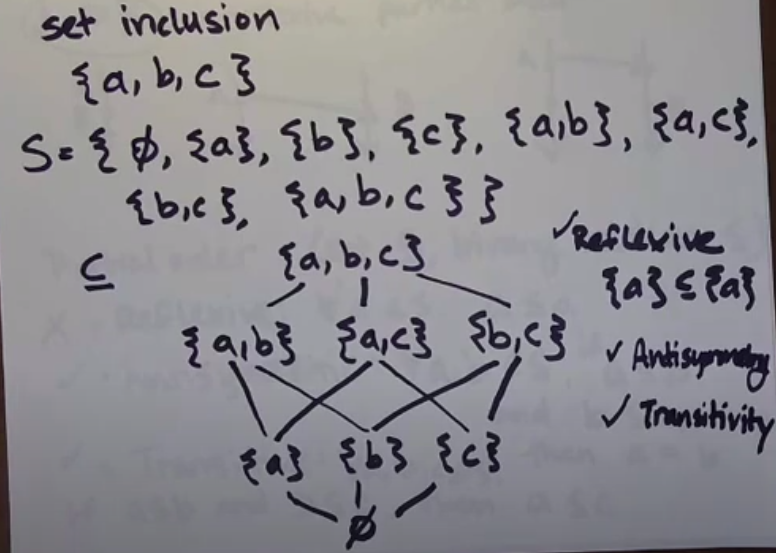 set inclusion
{a, b, c}
S = { ∅, {a}, {b}, {c}, {a,b}, {a,c},
{b,c}, {a, b, c} }
⊆
{a, b, c}
{a,b} {a,c} {b,c}
{a} {b} {c}
∅
✓ Reflexive
{a} ⊆ {a}
✓ Antisymmetry
✓ Transitivity